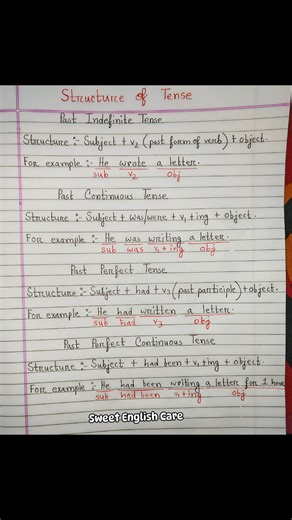 Structure of Tense
Past Indefinite Tense
Structure :- Subject + v₂ (past form of verb) + object.
For example :- He wrote a letter.
sub v₂ obj
Past Continuous Tense
Structure :- Subject + was/were + v₁ + ing + object.
For example :- He was writing a letter.
sub was v₁ + ing obj
Past Perfect Tense
Structure :- Subject + had + v₃ (past participle) + object.
For example :- He had written a letter.
sub had v₃ obj
Past Perfect Continuous Tense
Structure :- Subject + had been + v₁ + ing + object.
For example :- He had been writing a letter for 1 hour
sub had been v₁ + ing obj
Sweet English Care